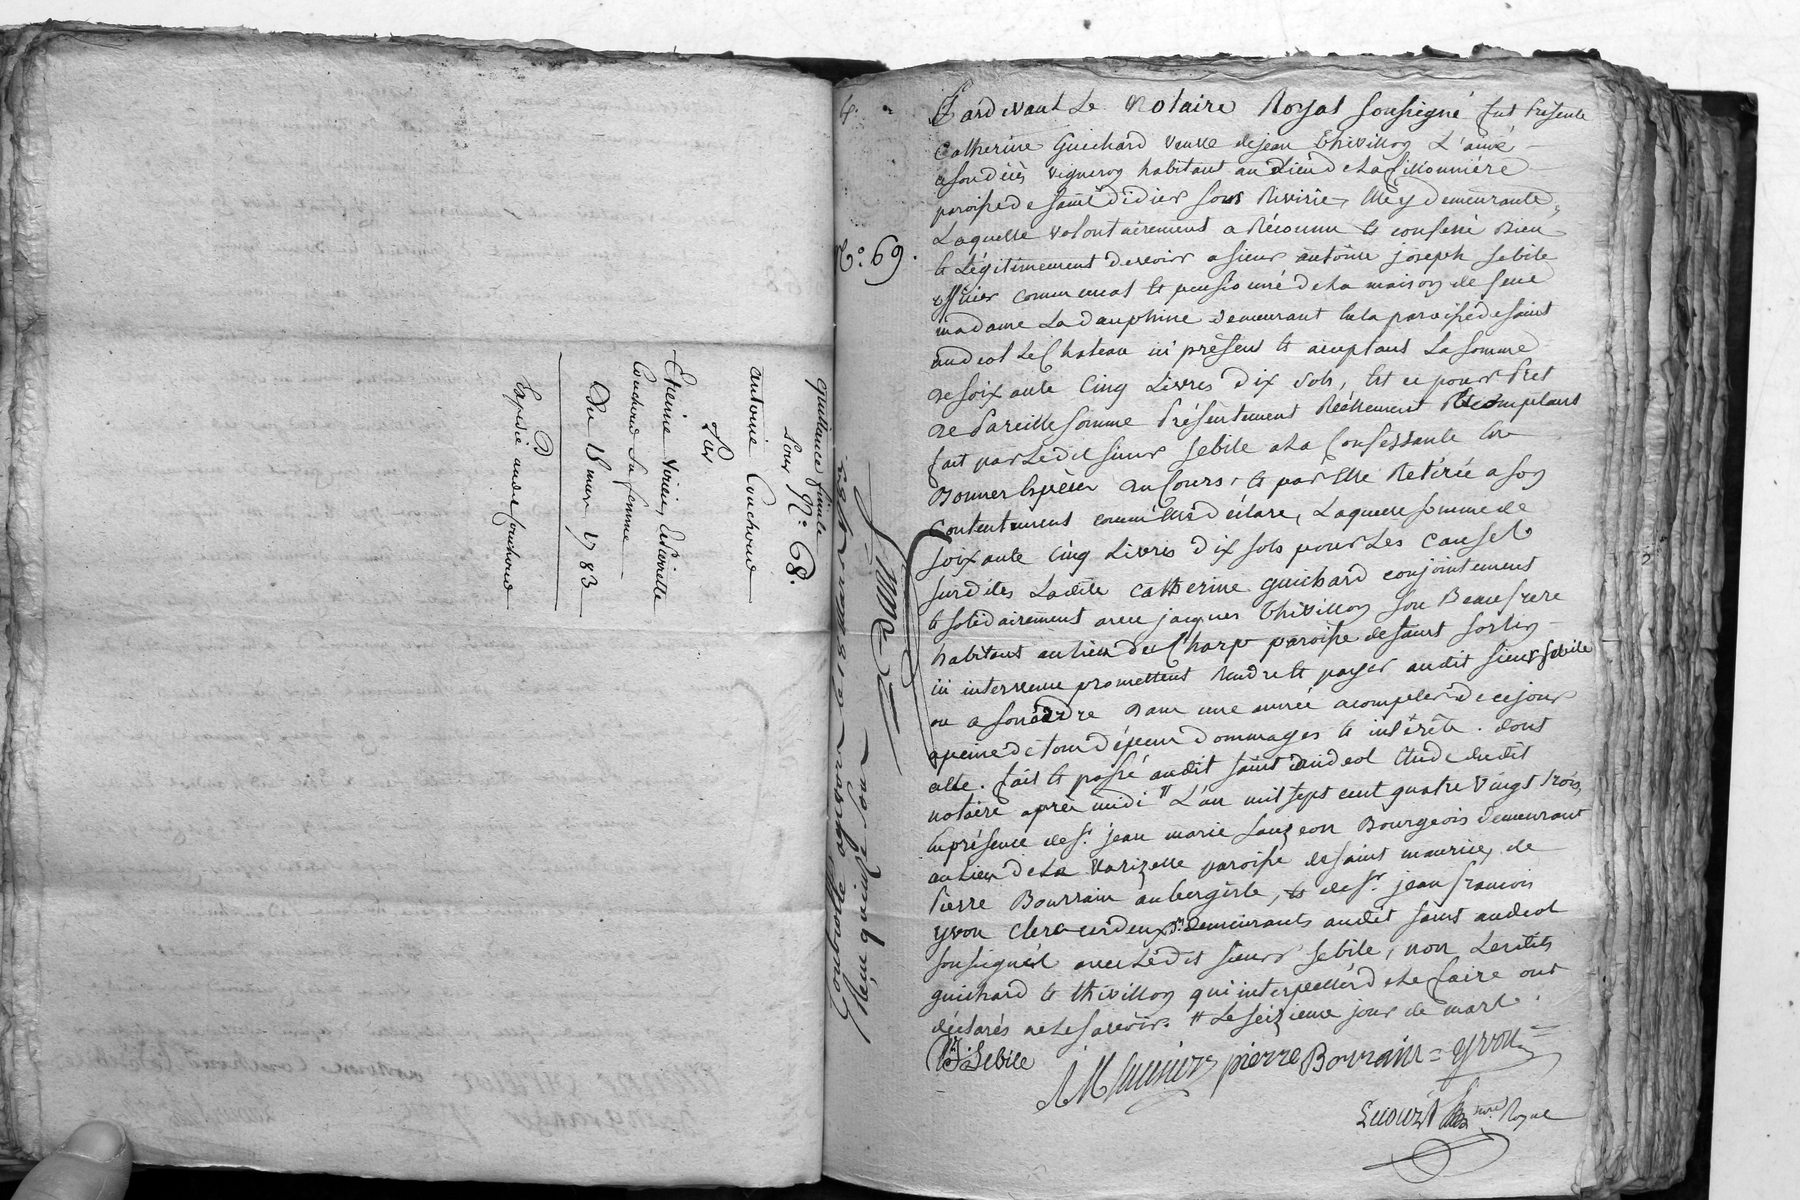 quittance finale
Sous N.° 68.
antoine Couchoud
Par
Etienne Virieu, et Pierrette
Couchoud sa femme
Du 18 mars 1783
Expedié audit Couchoud
4.
N.° 69.
Controllé
quinze sous
Pardevant Le Notaire Royal soussigné fut Présente
Catherine Guichard veuve de jean thivillon L'ainé
a son décès vigneron habitant au Lieu de La
paroisse de saint didier sous Riviriè, Elle y demeurante,
Laquelle volontairement a Réconnu et confessé Bien
et Légitimement devoir a sieur antoine joseph sebile
officier commensal et pensionné de la maison de feue
madame La dauphine demeurant en la paroisse de saint
andeol Le Chateau ici présent et acceptant La somme
de soixante Cinq Livres dix sols, Et ce pour Pret
de Pareille somme Présentement Réellement et comptant
fait par Ledit sieur sebile a La Confessante En
Bonnes Espèces au Cours, et par Elle Retirée a son
Contentement comm'elle déclare, Laquelle somme de
soixante Cinq Livres dix sols pour Les Causes
surdites Ladite Catherine guichard conjointement
et solidairement avec jacques thivillon son Beaufrere
habitant au lieu du Charpu paroisse de saint sorlin
ici intervenu promettent Rendre et payer audit sieur sebile
ou a son ordre Dans une année acompter de ce jour
apeine de tous dépens dommages et intérêts. dont
acte. fait et passé audit saint andeol Etude dudit
notaire après midi # L'an mil sept cent quatre vingt trois,
En présence de s.r jean marie Bourgeois demeurant
au Lieu de La Varizelle paroisse de saint maurice, de
Pierre Bourrain aubergiste, et de s.r jean francois
yvon clerc ces deux d.rs demeurants audit saint andeol
soussignés avec Ledit sieur sebile, non Lesdits
guichard et thivillon qui interpellés de Le faire ont
déclarés ne Le savoir. # Le seizieme jour de mars.
Sebile
pierre Bourrain = yvon =
Royal